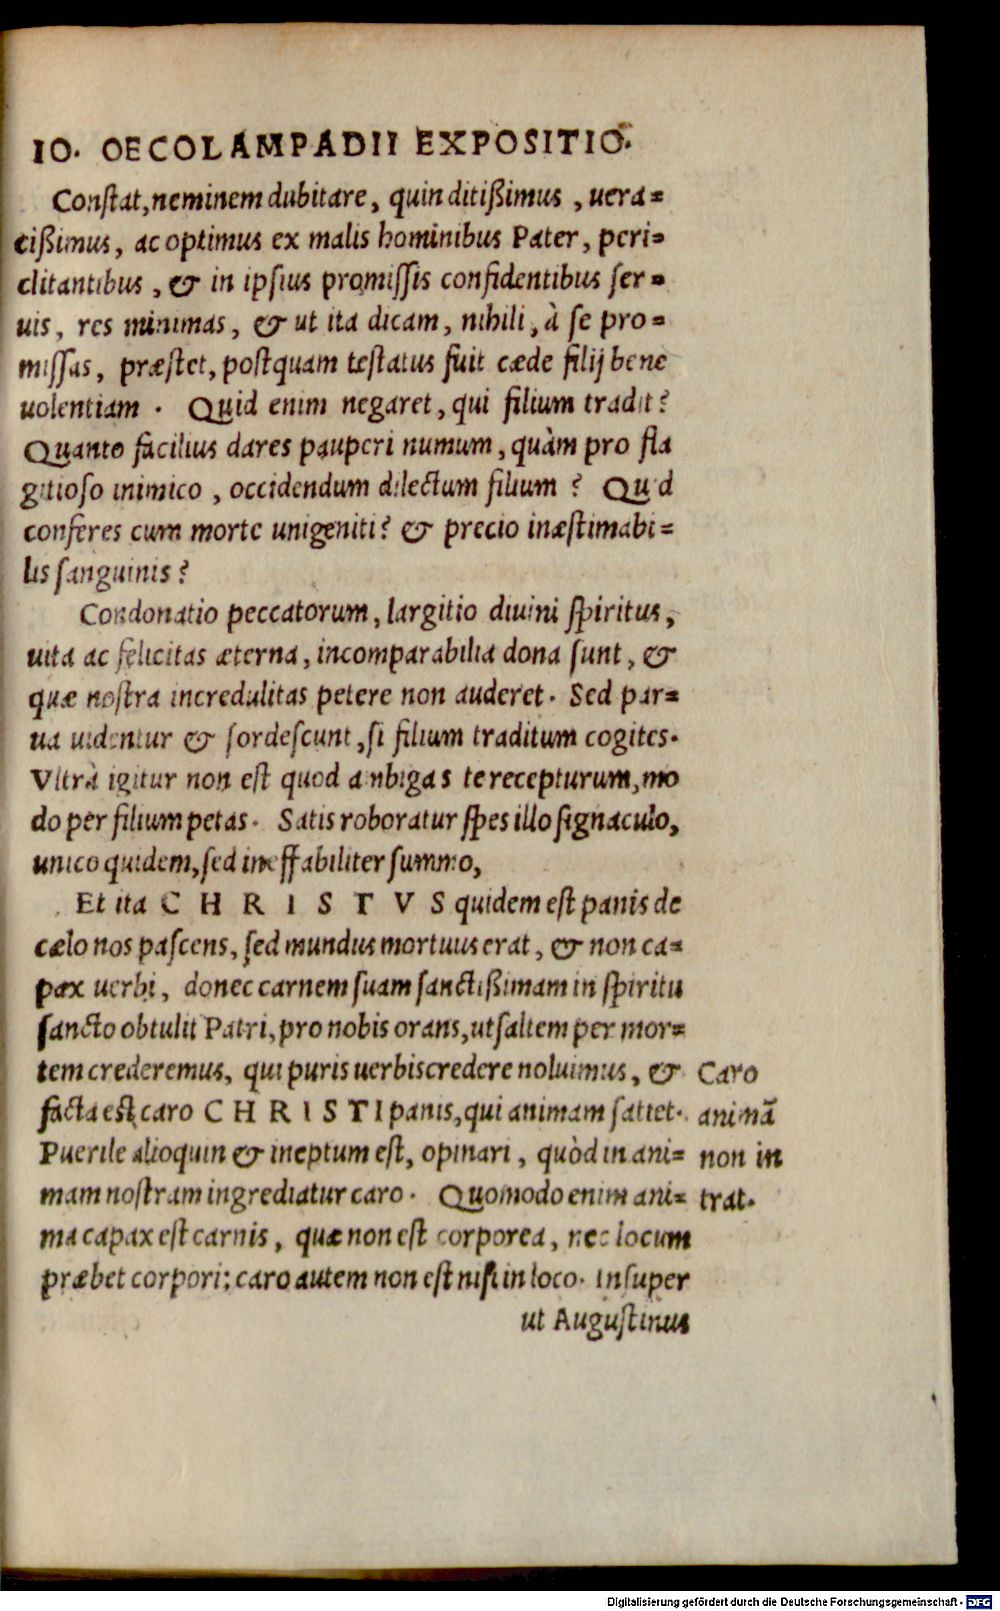 IO. OECOLAMPADII EXPOSITIO.
Constat, neminem dubitare, quin ditißimus, uera=
cißimus, ac optimus ex malis hominibus Pater, peri=
clitantibus, & in ipsius promissis confidentibus ser=
uis, res minimas, & ut ita dicam, nihili, à se pro=
missas, præstet, postquam testatus fuit cæde filij bene
uolentiam. Quid enim negaret, qui filium tradit?
Quanto facilius dares pauperi numum, quàm pro fla
gitioso inimico, occidendum dilectum filium? Quid
conferes cum morte unigeniti? & precio inæstimabi=
lis sanguinis?
Condonatio peccatorum, largitio diuini spiritus,
uita ac felicitas æterna, incomparabilia dona sunt, &
quæ nostra incredulitas petere non auderet. Sed par=
ua uidentur & sordescunt, si filium traditum cogites.
Vltrà igitur non est quod ambigas te recepturum, mo
do per filium petas. Satis roboratur spes illo signaculo,
unico quidem, sed ineffabiliter summo,
Et ita CHRISTVS quidem est panis de
cælo nos pascens, sed mundus mortuus erat, & non ca=
pax uerbi, donec carnem suam sanctißimam in spiritu
sancto obtulit Patri, pro nobis orans, ut saltem per mor=
tem crederemus, qui puris uerbis credere noluimus, &
facta est caro CHRISTI panis, qui animam satiet.
Puerile alioquin & ineptum est, opinari, quòd in ani=
mam nostram ingrediatur caro. Quomodo enim ani=
ma capax est carnis, quæ non est corporea, nec locum
præbet corpori: caro autem non est nisi in loco. Insuper
ut Augustinus
Caro
animā
non in
trat.
Digitalisierung gefördert durch die Deutsche Forschungsgemeinschaft - DFG